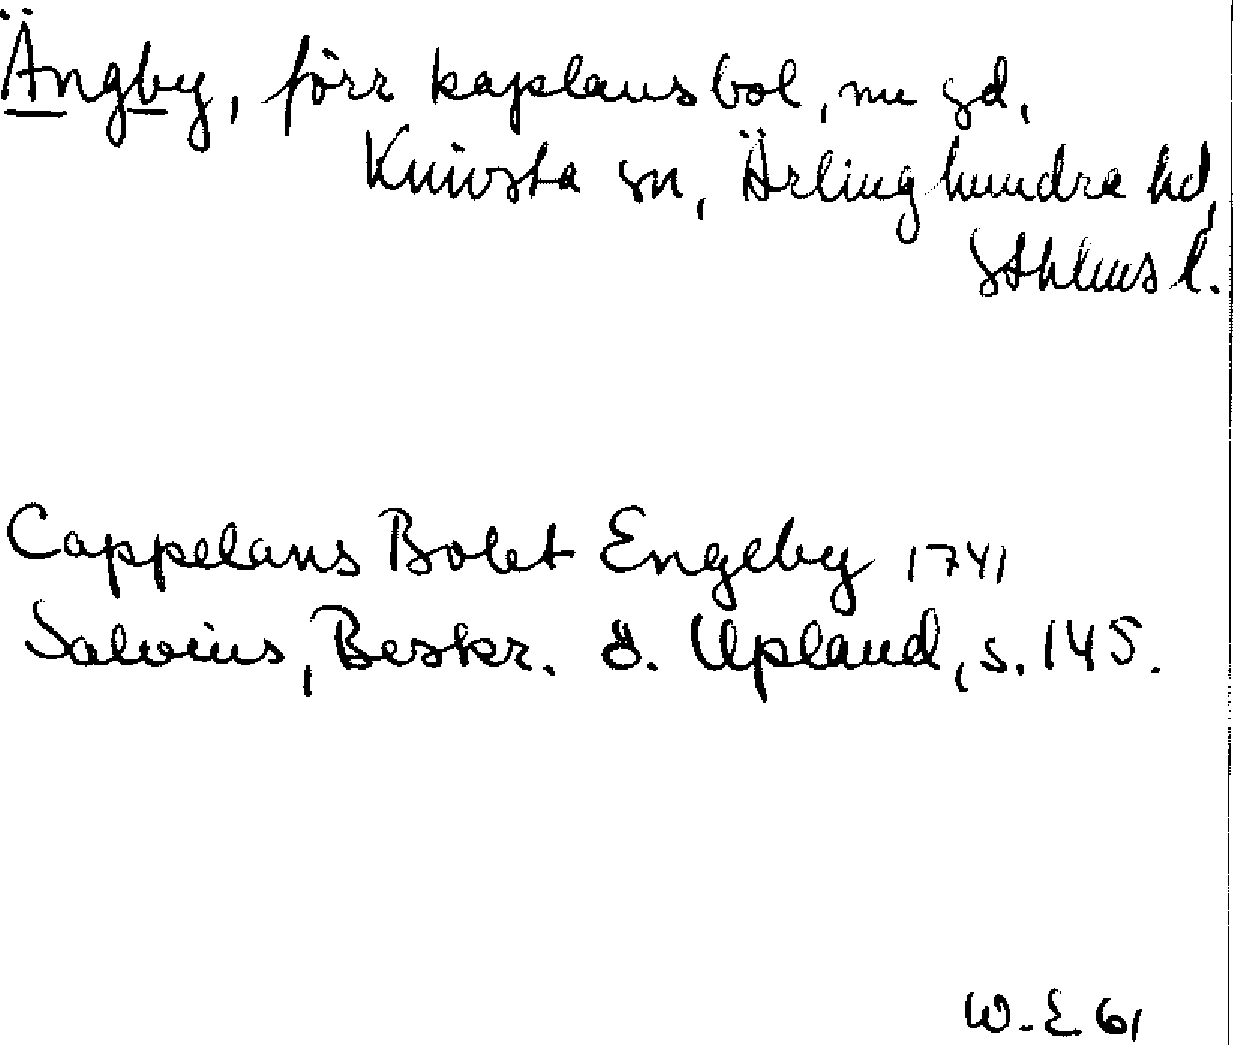 Ängby, förr kaplansbol, nu gd,
Knivsta sn, Ärlinghundra hd,
Sthlms l.
Cappelans Bolet Engeby 1741
Salvius, Beskr. ö. Upland, s. 145.
W. E 61